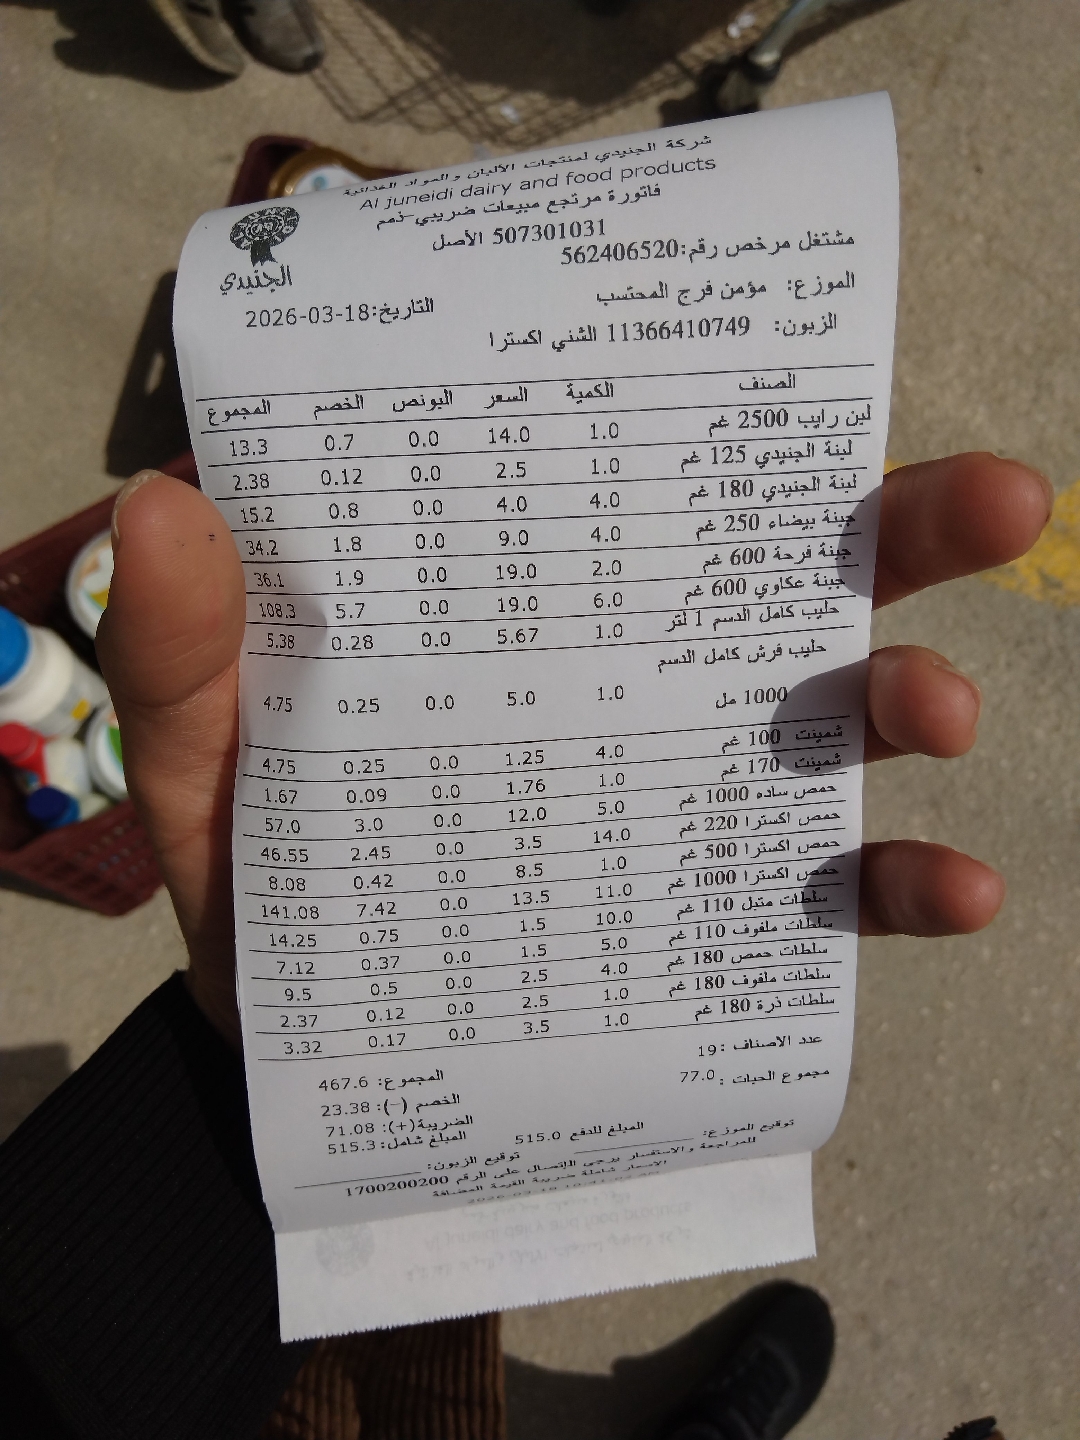 شركة الجنيدي لمنتجات الألبان والمواد الغذائية
Al juneidi dairy and food products
فاتورة مرتجع مبيعات ضريبي-ذمم
507301031 الأصل
الجنيدي
مشتغل مرخص رقم:562406520
الموزع: مؤمن فرج المحتسب
التاريخ:2026-03-18
الزبون: 11366410749 الشني اكسترا
الصنف الكمية السعر البونص الخصم المجموع
لبن رايب 2500 غم 1.0 14.0 0.0 0.7 13.3
لبنة الجنيدي 125 غم 1.0 2.5 0.0 0.12 2.38
لبنة الجنيدي 180 غم 4.0 4.0 0.0 0.8 15.2
جبنة بيضاء 250 غم 4.0 9.0 0.0 1.8 34.2
جبنة فرحة 600 غم 2.0 19.0 0.0 1.9 36.1
جبنة عكاوي 600 غم 6.0 19.0 0.0 5.7 108.3
حليب كامل الدسم 1 لتر 1.0 5.67 0.0 0.28 5.38
حليب فرش كامل الدسم
1000 مل 1.0 5.0 0.0 0.25 4.75
شمينت 100 غم 4.0 1.25 0.0 0.25 4.75
شمينت 170 غم 1.0 1.76 0.0 0.09 1.67
حمص ساده 1000 غم 5.0 12.0 0.0 3.0 57.0
حمص اكسترا 220 غم 14.0 3.5 0.0 2.45 46.55
حمص اكسترا 500 غم 1.0 8.5 0.0 0.42 8.08
حمص اكسترا 1000 غم 11.0 13.5 0.0 7.42 141.08
سلطات متبل 110 غم 10.0 1.5 0.0 0.75 14.25
سلطات ملفوف 110 غم 5.0 1.5 0.0 0.37 7.12
سلطات حمص 180 غم 4.0 2.5 0.0 0.5 9.5
سلطات ملفوف 180 غم 1.0 2.5 0.0 0.12 2.37
سلطات ذرة 180 غم 1.0 3.5 0.0 0.17 3.32
عدد الاصناف :19
المجموع: 467.6
مجموع الحبات :77.0
الخصم (-): 23.38
الضريبة(+): 71.08
المبلغ للدفع 515.0
المبلغ شامل: 515.3
توقيع الموزع: ____________ توقيع الزبون: ____________
للمراجعة والاستفسار يرجى الإتصال على الرقم 1700200200
الاسعار شاملة ضريبة القيمة المضافة